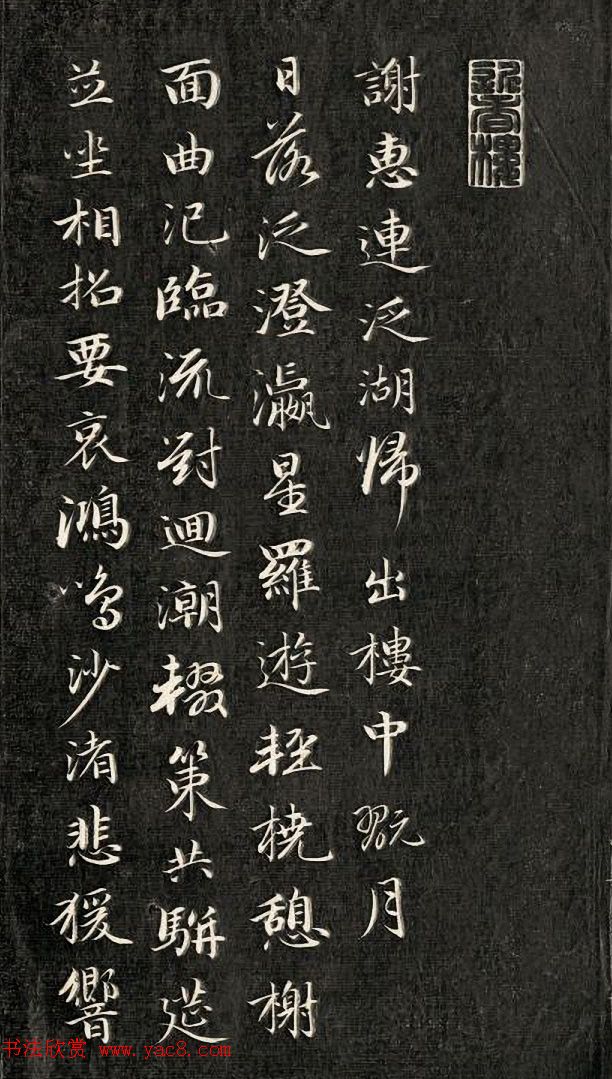 謝惠連泛湖歸出樓中翫月
日落泛澄瀛星羅遊輕橈憩榭
面曲汜臨流對迴潮輟策共駢筵
並坐相招要哀鴻鳴沙渚悲猨響
书法欣赏 www.yac8.com